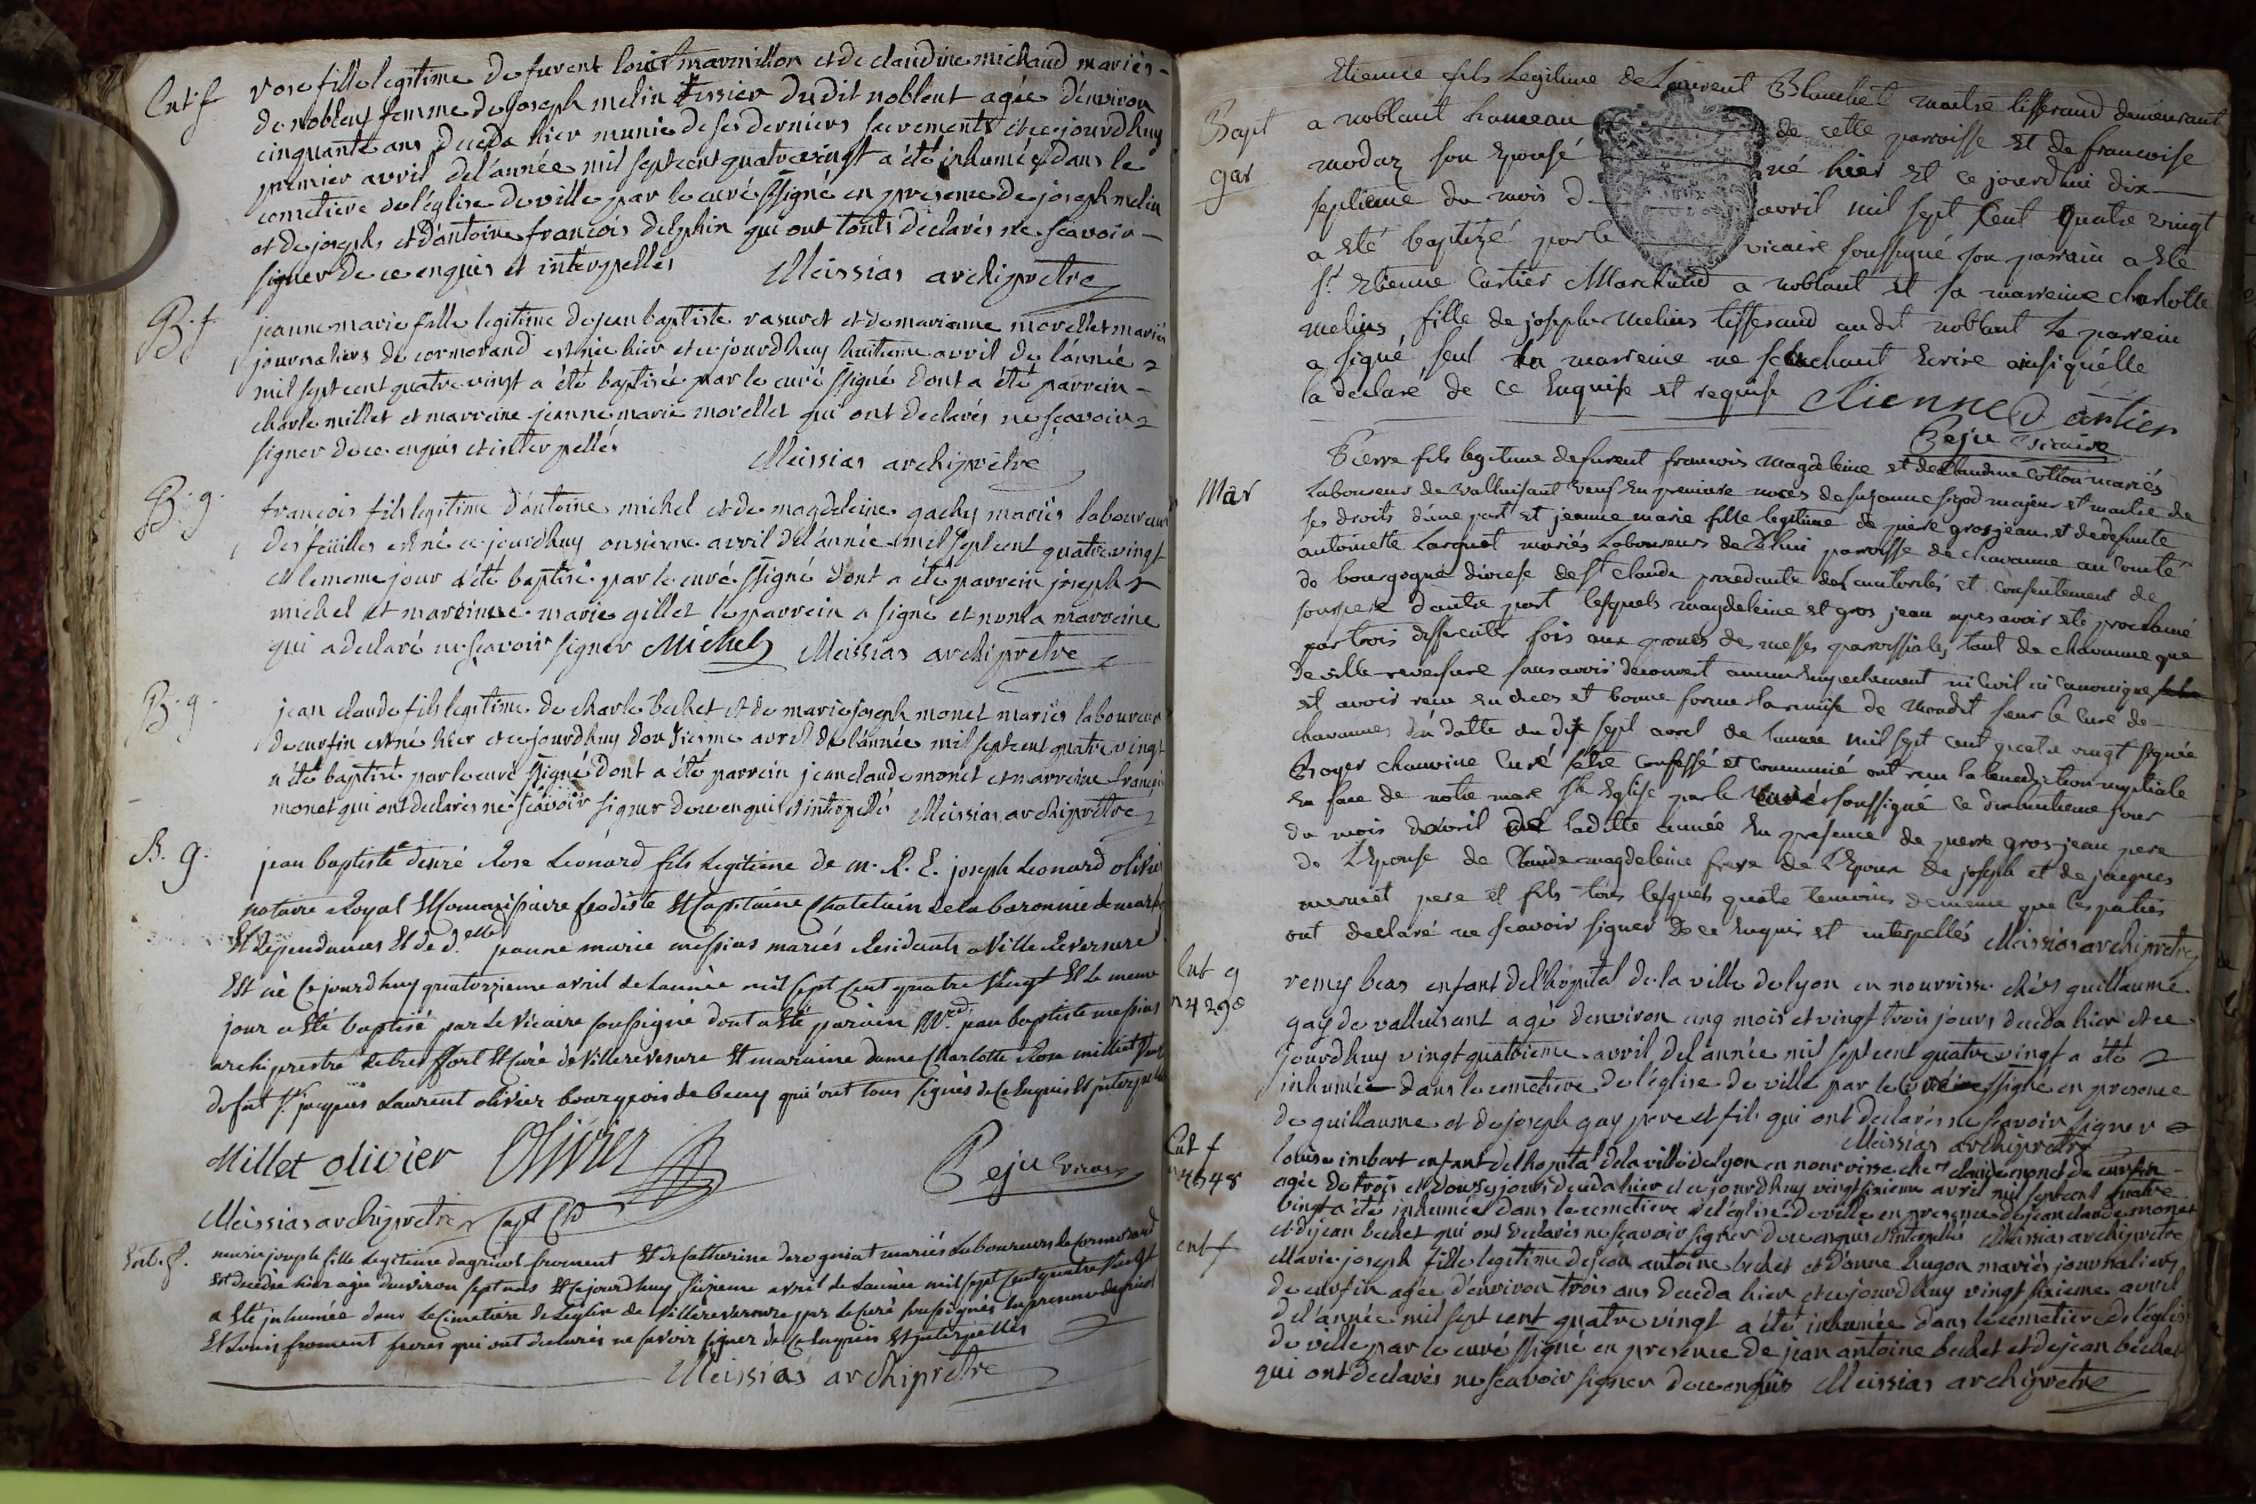 Ent. f
rose fille legitime de fuvent louis marmillon et de claudine michaud mariés
de noblens femme de joseph melin tissier dudit noblent agée d'environ
cinquante ans deceda hier munie de ses derniers sacrements et ce jourdhuy
premier avril de l'année mil sept cent quatre vingt a été inhumée dans le
cometiere de l'église de ville par le curé ssigné en presence de joseph melin
et de joseph et d'antoine francois delphin qui ont touts déclarés ne scavoir
signer de ce enquis et interpellés Meissias archiprêtre
B. f
jeanne marie fille legitime de jean baptiste rasuret et de marianne morellet mariés
journaliers de cormorand est née hier et ce jourdhuy huitieme avril de l'année
mil sept cent quatre vingt a été baptisée par le curé ssigné dont a été parrein
charle millet et marreine jeanne marie morellet qui ont declarés ne scavoir
signer de ce enquis et interpellés Meissias archiprêtre
B. g.
francois fils legitime d'antoine michel et de magdeleine gachy mariés laboureurs
des feüilles est né ce jourdhuy onsieme avril de l'année mil sept cent quatre vingt
et le meme jour a été baptisé par le curé ssigné dont a été parrein joseph
michel et mareinne marie gillet le parrein a signé et non la marreine
qui a declaré ne scavoir signer Michel Meissias archiprêtre
B. g.
jean claude fils legitime de charle bechet et de marie joseph monet mariés laboureurs
de curfin est né hier et ce jourdhuy douzieme avril de l'année mil sept cent quatre vingt
a été baptisé par le curé ssigné dont a été parrein jean claude monet et marreine francoise
monet qui ont declarés ne scavoir signer de ce enquis et interpellés Meissias archiprêtre
B. g.
jean baptiste desiré Rose Leonard fils Legitime de m. R. E. joseph Leonard olivier
notaire Royal Et Commissaire feodiste Et Capitaine Chatelain de la baronnie de
Et dependances Et de d.elle jeanne marie messias mariés Residents a Ville Reversure
Est né Ce jourdhuy quatorzieme avril de Lannée mil sept Cent quatre vingt Et le meme
jour a Eté baptisé par Le Vicaire soussigné dont a Eté parain jean baptiste messias
archiprestre de treffort Et Curé de Villereversure Et maraine dame Charlotte Rose milliet
de fut S.r jacques Laurent olivier bourgeois de beny qui ont tous signés de Ce Enquis Et interpellés
Millet olivier Olivier Beju vicaire
Meissias archiprêtre
Ent. f.
marie joseph fille Legitime dagricol froment Et de Catherine mariés Laboureurs de Cormorand
Est decedée hier agée denviron sept mois Et Cejourdhuy seizieme avril de Lannée mil sept Cent quatre vingt
a Eté inhumée dans Le Cimetiere de Leglise de Villereversure par Le Curé soussigné En presence dagricol
Et Louis froment freres qui ont declarés ne scavoir signer de Ce Enquis Et interpellés
Meissias archiprêtre
Bapt
gar
Etienne fils Legitime de Laurent Bluchet maitre tisserand demeurant
a noblant hameau de cette parroisse et de francoise
moduz son epousé né hier et ce jourdhui dix
septieme du mois d avril mil sept Cent quatre vingt
a eté baptizé par le vicaire soussigné son parrain a eté
S.r Etienne Cartier Marchand a noblant et sa marreine charlotte
melins fille de joseph melins tisserand audit noblant Le parrein
a signé seul la marreine ne scachant Ecrire ainsi quélle
la declaré de ce Enquise et requise Etienne Cartier
Beju Vicaire
Mar
Pierre fils legitime defuvent francois magdeleine et de Claudine Cotton mariés
Laboureur de Valluisant veuf en premiere noces de suzanne sigod majeur et maitre de
ses droits d'une part et jeanne marie fille legitime de pierre grosjean et de defunte
antoinette Larquet mariés Laboureurs de parroisse de chavanne au Comté
de bourgogne diocese de S.t Claude procedante des autorités et consentement de
son pere d'autre part lesquels magdeleine et gros jean apres avoir eté proclamé
par trois differentes fois aux prones de messes parroissiales tant de chavanne que
de ville reversure sans avoir decouvert aucun Empechement ni Civil ni Canonique
et avoir reçu en dues et bonne forme la remise de Mondit sieur le Curé de
chavannes en datte du dix sept avril de lannée mil sept cent quatre vingt signée
Royer chauvine Curé s'etre Confessé et communié ont reçu la benediction nuptiale
En face de notre mere S.te Eglise par le Curé soussigné ce dixhuitieme jour
du mois davril de laditte année En presence de pierre gros jean pere
de L'Epouse de Claude magdeleine frere de L'Epoux de joseph et de jacques
pere et fils tous lesquels quatre temoins de meme que les parties
ont declaré ne scavoir signer de ce Enquis et interpellés Meissias archiprêtre
Ent g
n 4298
remy beas enfant de l'hopital de la ville de lyon en nourrisse chés guillaume
gay de valluisant agé d'environ cinq mois et vingt trois jours deceda hier et ce
jourdhuy vingt quatrieme avril de l'année mil sept cent quatre vingt a été
inhumée dans le cometiere de l'église de ville par le curé ssigné en presence
de guillaume et de joseph gay pere et fils qui ont declarés ne scavoir signer
Meissias archiprêtre
Ent f
4548
louise imbert enfant de lhopital de la ville de lyon en nourrisse chés claude monet de curfin
agée de trois et douse jours deceda hier et ce jourdhuy vingt sixieme avril mil sept cent quatre
vingt a été inhumée dans le cemetiere de l'eglise de ville en presence de jean claude monet
et de jean bechet qui ont declarés ne scavoir signer de ce enquis et interpellés Meissias archiprêtre
ent f
Marie joseph fille legitime de jean antoine bechet et d'anne hugon mariés journaliers
de curfin agée d'environ trois ans deceda hier et ce jourdhuy vingt sixieme avril
de l'année mil sept cent quatre vingt a été inhumée dans le cemetiere de l'église
de ville par le curé ssigné en presence de jean antoine bechet et de jean bechet
qui ont declarés ne scavoir signer de ce enquis Meissias archiprêtre